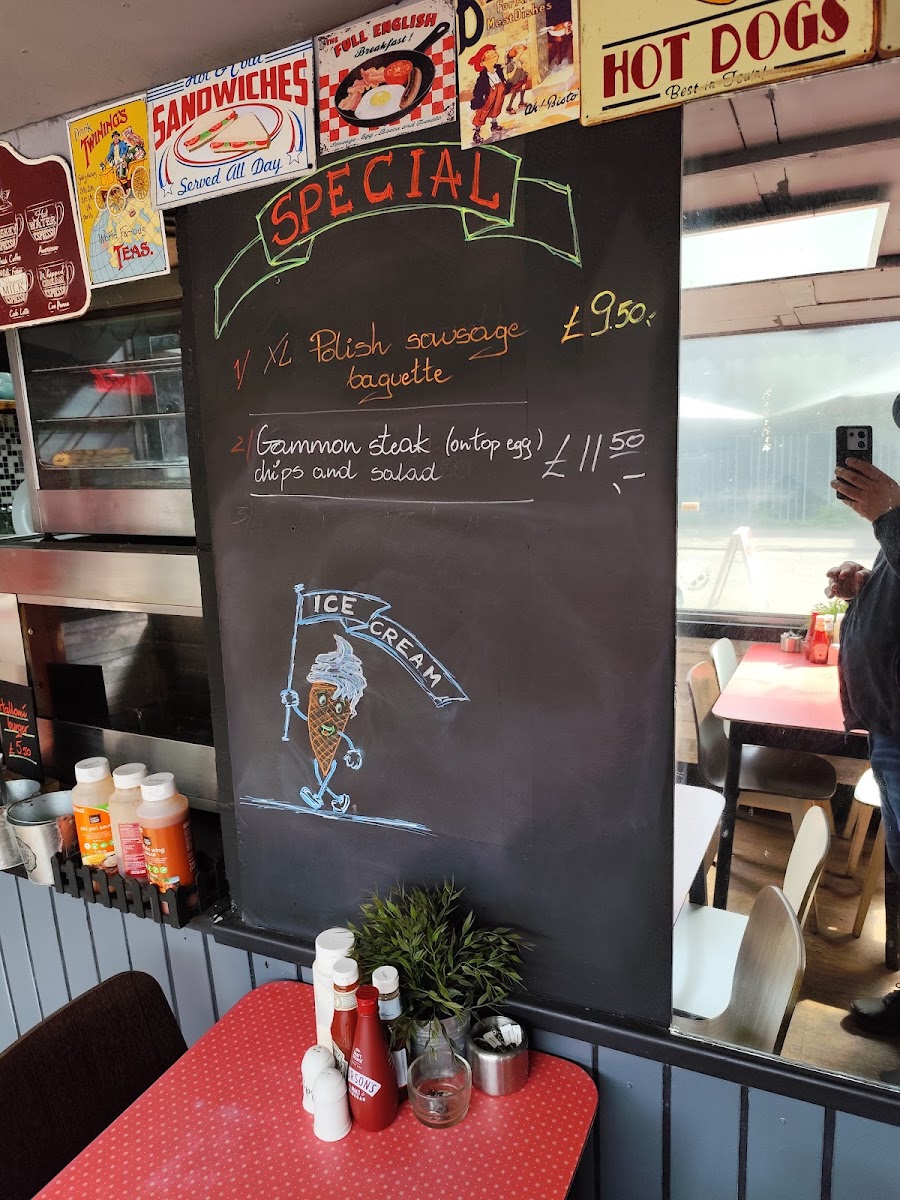 Drink
TWININGS
World Famous
TEAS.
Hot & Cold
SANDWICHES
Served All Day
THE
FULL ENGLISH
Breakfast!
Meat Dishes
Ah! Bisto
HOT DOGS
Best in Town!
SPECIAL
1/ XL Polish sausage
baguette
£9.50,-
2/ Gammon steak (on top egg)
chips and salad
£11 50,-
3,
ICE
CREAM
burger
£5.50